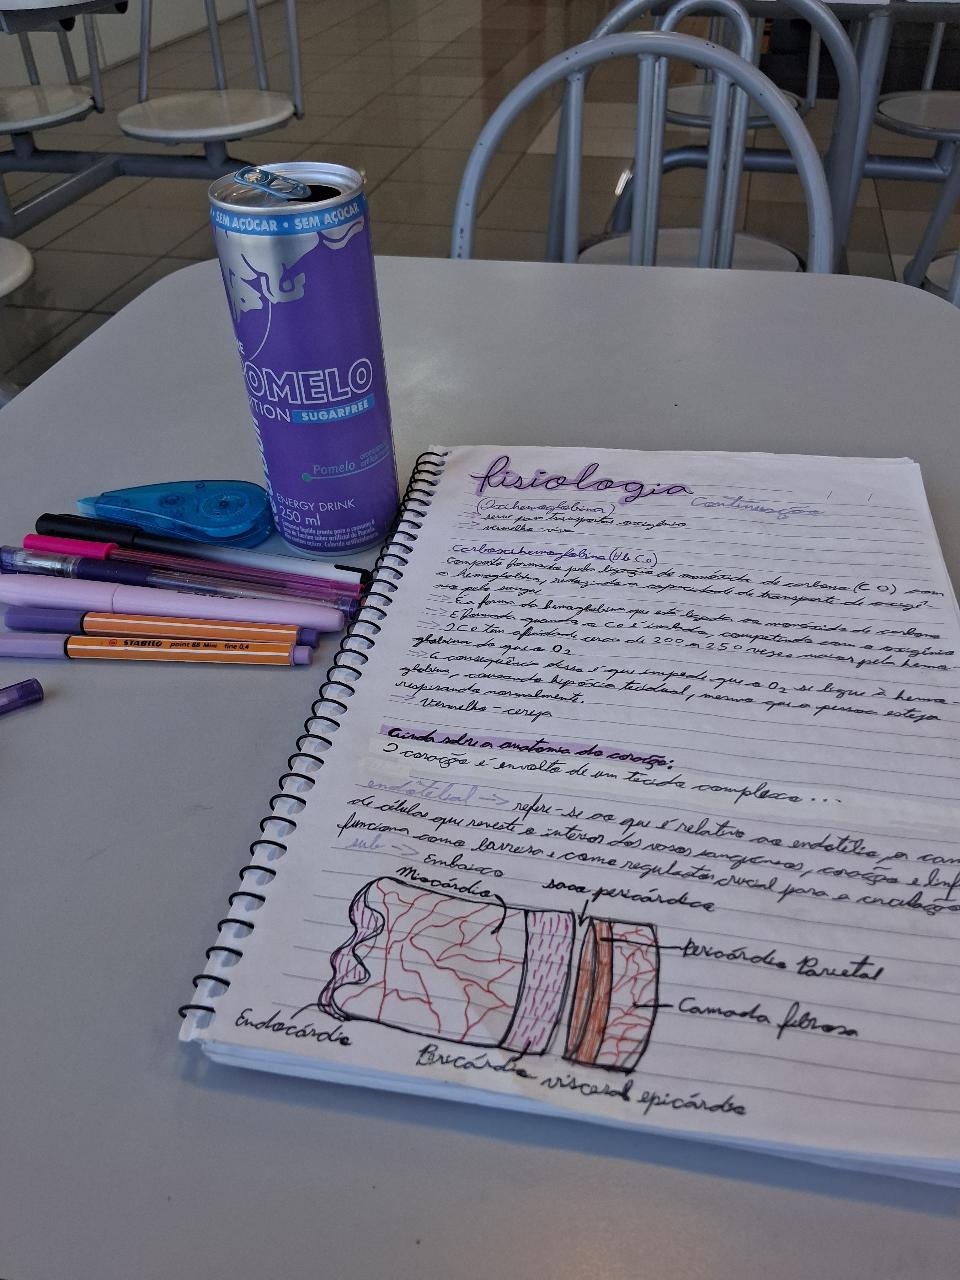 • SEM AÇÚCAR • SEM AÇÚCAR
OMELO
TION SUGARFREE
Pomelo
ENERGY DRINK
250 ml
STABILO point 88 Mini fine 0,4
fisiologia continuação
(Oxihemoglobina)
→ serve para transportar oxigênio
→ vermelho-vivo
carboxihemoglobina (HbCo)
composto formado pela ligação de monóxido de carbono (CO) com
a hemoglobina, reduzindo a capacidade de transporte de oxigê-
nio pelo sangue
→ É a forma da hemoglobina que está ligada ao monóxido de carbono
→ É formada quando o CO é inalado, competindo com o oxigênio
→ O CO tem afinidade cerca de 200 a 250 vezes maior pela hemo-
globina do que o O2
→ A consequência disso é que impede que o O2 se ligue à hemo-
globina, causando hipóxia tecidual, mesmo que a pessoa esteja
respirando normalmente.
→ vermelho-cereja
Ainda sobre a anatomia do coração:
O coração é envolto de um tecido complexo...
endotelial → refere-se ao que é relativo ao endotélio, a cam
de células que reveste o interior dos vasos sanguíneos, coração e linf
funciona como barreira e como regulador crucial para a circulação
sub → Embaixo
Miocárdio
saco pericárdico
Pericárdio Parietal
Camada fibrosa
Endocárdio
Pericárdio visceral epicárdio